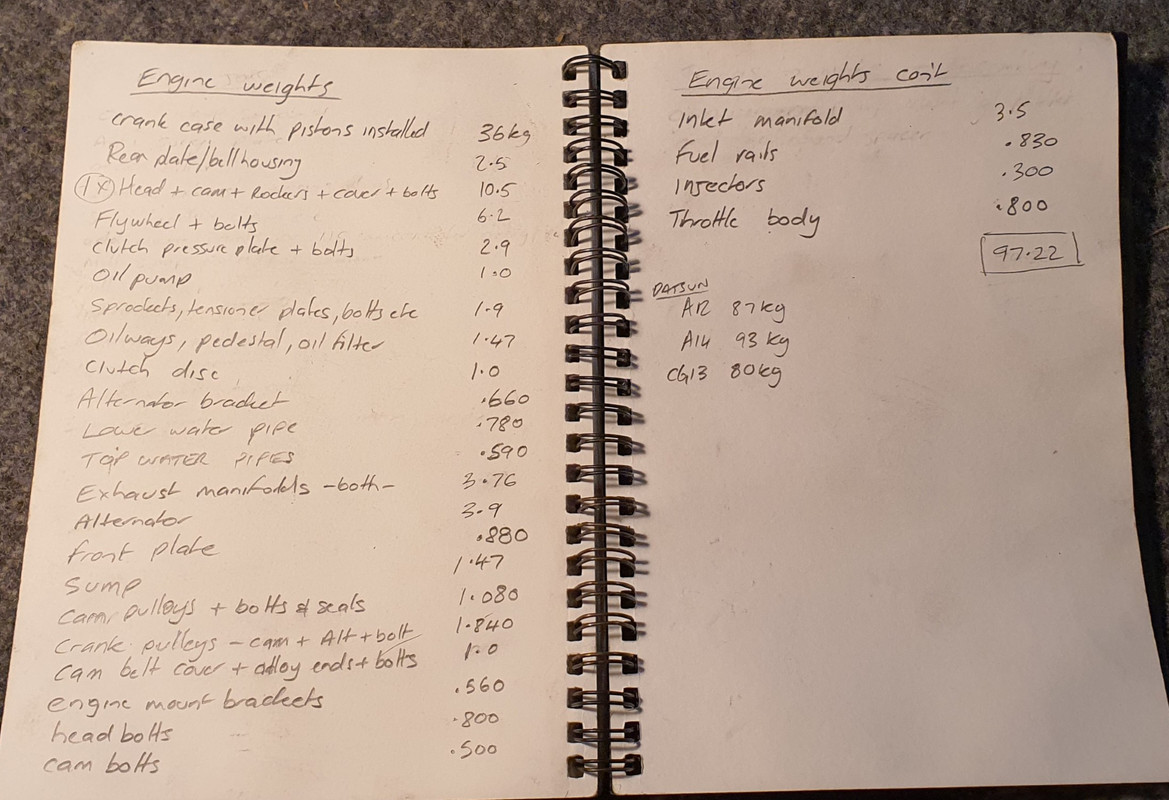 Engine weights
crank case with pistons installed 36kg
Rear plate/bellhousing 2.5
1x Head + cam + Rockers + cover + bolts 10.5
Flywheel + bolts 6.2
Clutch pressure plate + bolts 2.9
Oil pump 1.0
Sprockets, tensioner plates, bolts etc 1.9
Oilways, pedestal, oil filter 1.47
Clutch disc 1.0
Alternator bracket .660
Lower water pipe .780
TOP WATER PIPES .590
Exhaust manifolds -both- 3.76
Alternator 3.9
front plate .880
Sump 1.47
Cam pulleys + bolts & seals 1.080
Crank pulleys - cam + Alt + bolt 1.840
Cam belt cover + alloy ends + bolts 1.0
engine mount brackets .560
head bolts .800
cam bolts .500
Engine weights con't
Inlet manifold 3.5
Fuel rails .830
Injectors .300
Throttle body .800
97.22
DATSUN
A12 87kg
A14 93kg
CG13 80kg